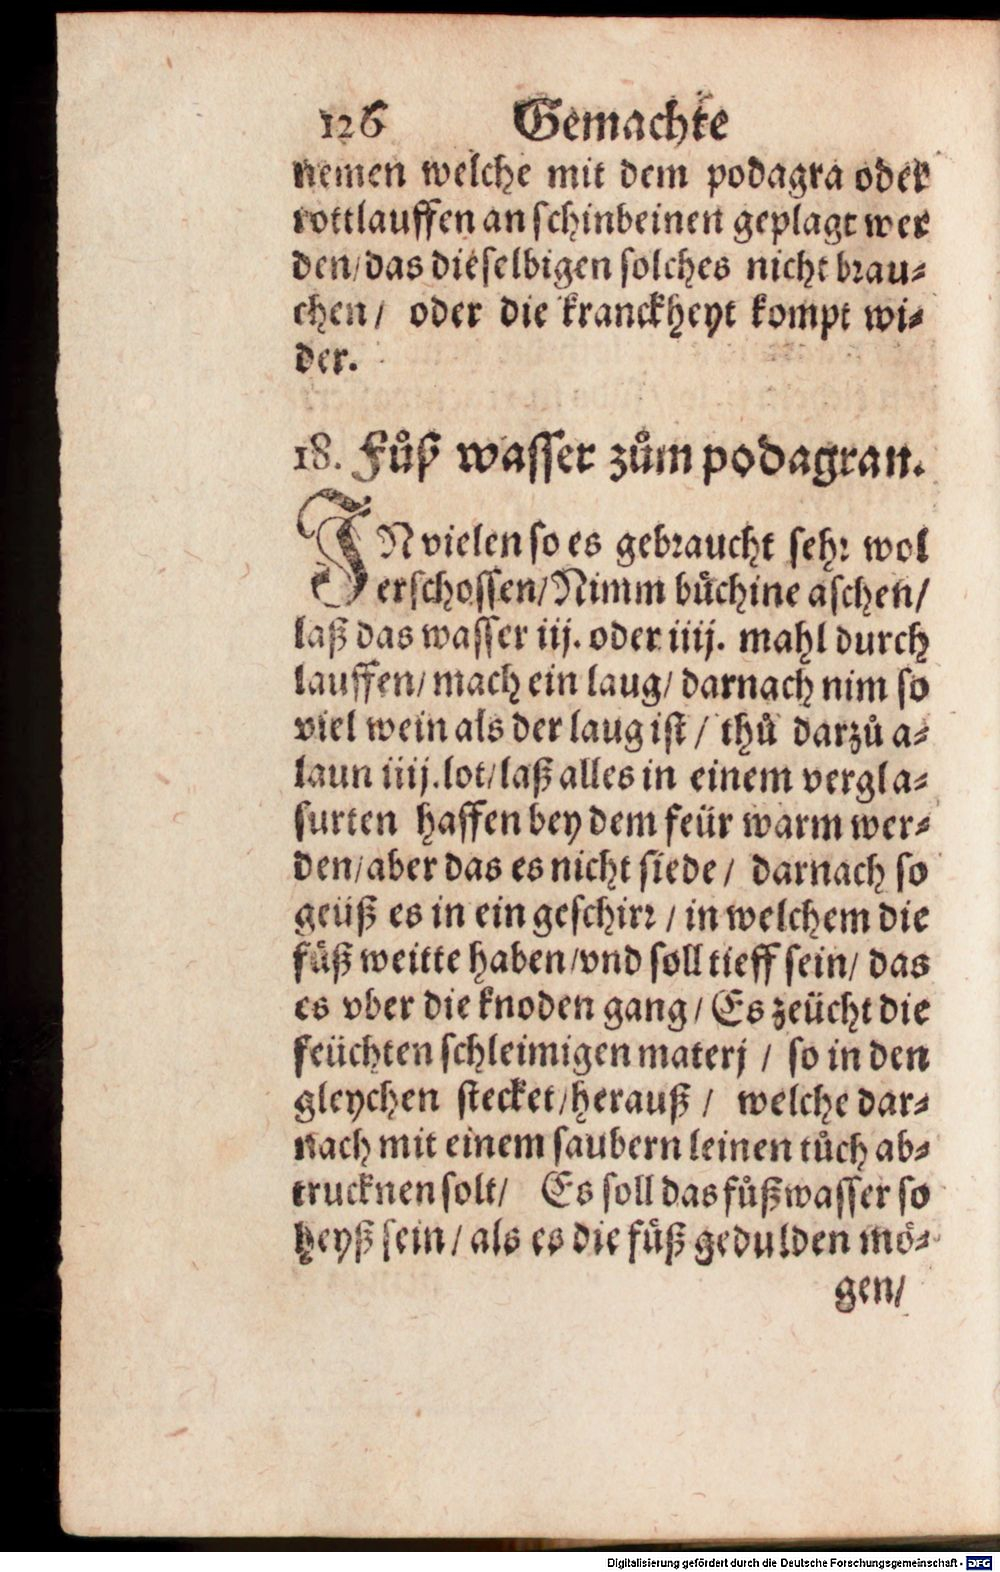 126 Gemachte
nemen welche mit dem podagra oder
rottlauffen an schinbeinen geplagt wer
den/das dieselbigen solches nicht brau-
chen/ oder die kranckheyt kompt wi-
der.
18. Fůß wasser zům podagran.
IN vielen so es gebraucht sehr wol
erschossen/Nimm bůchine aschen/
laß das wasser iij. oder iiij. mahl durch
lauffen/mach ein laug/darnach nim so
viel wein als der laug ist/ thů darzů a-
laun iiij.lot/laß alles in einem vergla-
surten haffen bey dem feür warm wer-
den/aber das es nicht siede/ darnach so
geüß es in ein geschirr/in welchem die
fůß weitte haben/vnd soll tieff sein/ das
es vber die knoden gang/Es zeücht die
feüchten schleimigen materj/ so in den
gleychen stecket/herauß/ welche dar-
nach mit einem saubern leinen tůch ab-
trucknen solt/ Es soll das fůßwasser so
heyß sein/als es die fůß gedulden mö-
gen/
Digitalisierung gefördert durch die Deutsche Forschungsgemeinschaft - DFG